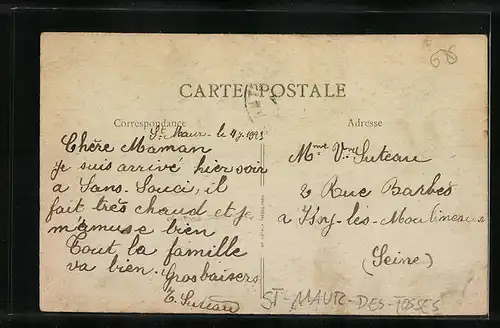 68
CARTE POSTALE
Correspondance
Adresse
St Maur le 4/7 1923
Chère Maman
je suis arrivé hier soir
a Sans-Souci, il
fait très chaud et je
m'amuse bien
Tout la famille
va bien. Grosbaisers
E. Suteau
Mme Vve Suteau
2 Rue Barbes
a Issy-les-Moulineaux
(Seine)
ST-MAUR-DES-FOSSES